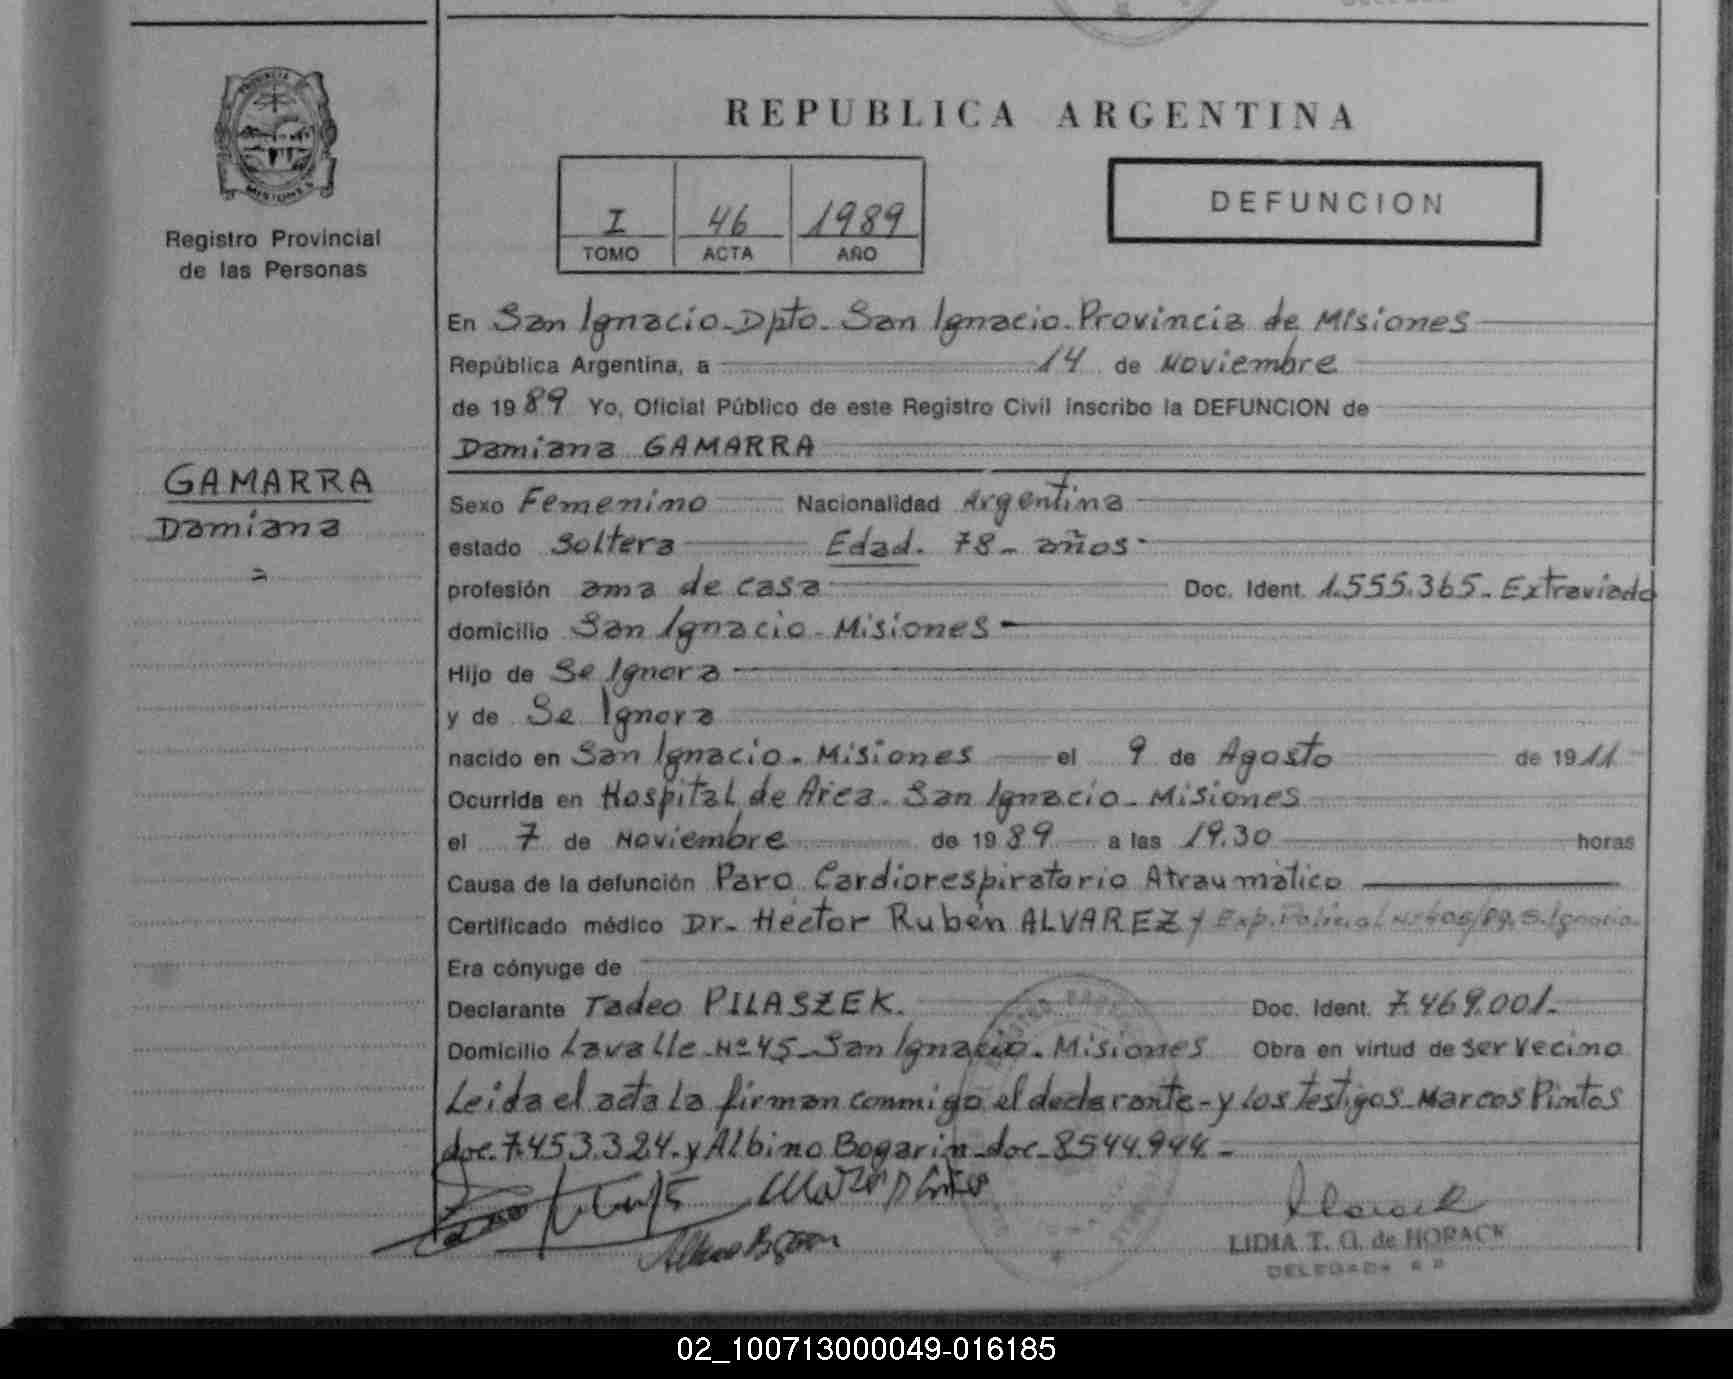 PROVINCIA DE
MISIONES
Registro Provincial
de las Personas
GAMARRA
Damiana
REPUBLICA ARGENTINA
I 46 1989
TOMO ACTA AÑO
DEFUNCION
En San Ignacio-Dpto- San Ignacio-Provincia de Misiones
República Argentina, a 14 de Noviembre
de 1989 Yo, Oficial Público de este Registro Civil inscribo la DEFUNCION de
Damiana GAMARRA
Sexo Femenino Nacionalidad Argentina
estado Soltera Edad. 78- años-
profesión ama de casa Doc. Ident. 1.555.365- Extraviado
domicilio San Ignacio- Misiones-
Hijo de Se Ignora
y de Se Ignora
nacido en San Ignacio- Misiones el 9 de Agosto de 1911
Ocurrida en Hospital de Area- San Ignacio- Misiones
el 7 de Noviembre de 1989 a las 19.30 horas
Causa de la defunción Paro Cardiorespiratorio Atraumático
Certificado médico Dr- Héctor Rubén ALVAREZ y Exp. Policial Nº 405/89. S. Ignacio-
Era cónyuge de
Declarante Tadeo PILASZEK. Doc. Ident. 7.469.001-
Domicilio Lavalle-Nº 45-San Ignacio- Misiones Obra en virtud de ser vecino
Leida el acta la firman conmigo el declarante-y los testigos-Marcos Pintos
doc. 7.453.324-y Albino Bogarin-doc-8544.944-
LIDIA T. G. de HORACK
DELEGADA
02_100713000049-016185